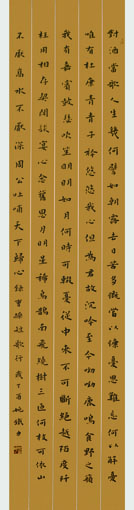 對酒當歌人生幾何譬如朝露去日苦多慨當以慷憂思難忘何以解憂
唯有杜康青青子衿悠悠我心但為君故沉吟至今呦呦鹿鳴食野之蘋
我有嘉賓鼓瑟吹笙明明如月何時可輟憂從中來不可斷絕越陌度阡
枉用相存契闊談宴心念舊恩月明星稀烏鵲南飛繞樹三匝何枝可依山
不厭高水不厭深周公吐哺天下歸心錄曹操短歌行